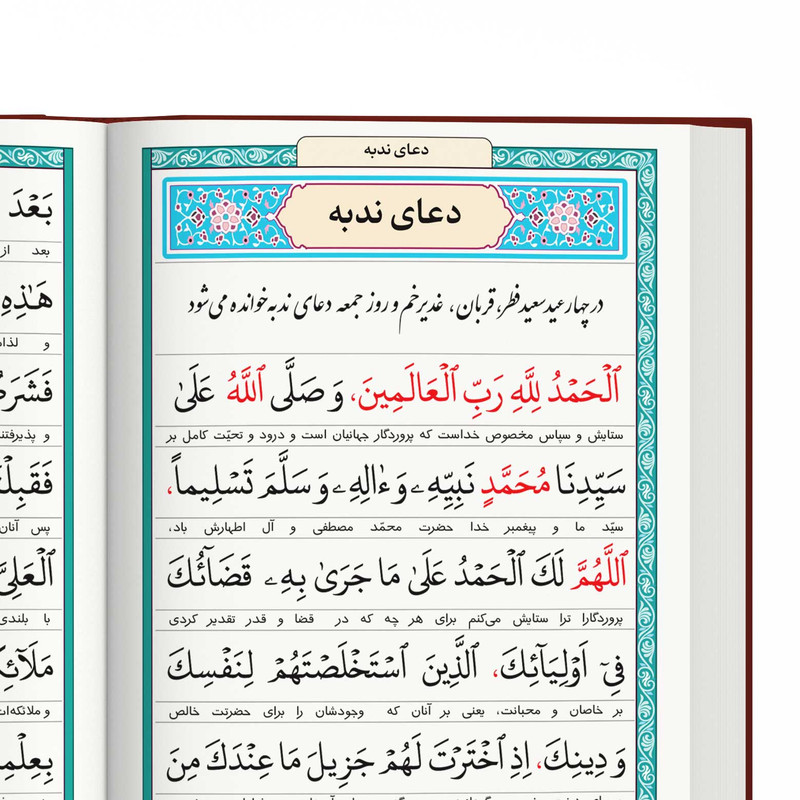 دعای ندبه
دعای ندبه
در چهار عید سعید فطر، قربان، غدیر خم و روز جمعه دعای ندبه خوانده می‌شود
ٱلْحَمْدُ لِلَّهِ رَبِّ ٱلْعَالَمِينَ، وَ صَلَّى ٱللَّهُ عَلَىٰ
ستایش و سپاس مخصوص خداست که پروردگار جهانیان است و درود و تحیّت کامل بر
سَيِّدِنَا مُحَمَّدٍ نَبِيِّهِۦ وَءَالِهِۦ وَ سَلَّمَ تَسْلِيماً،
سیّد ما و پیغمبر خدا حضرت محمّد مصطفی و آل اطهارش باد،
ٱللَّهُمَّ لَكَ ٱلْحَمْدُ عَلَىٰ مَا جَرَىٰ بِهِۦ قَضَآئُكَ
پروردگارا ترا ستایش می‌کنم برای هر چه که در قضا و قدر تقدیر کردی
فِىٓ أَوْلِيَآئِكَ، ٱلَّذِينَ ٱسْتَخْلَصْتَهُمْ لِنَفْسِكَ
بر خاصان و محبانت، یعنی بر آنان که وجودشان را برای حضرتت خالص
وَ دِينِكَ، إِذِ ٱخْتَرْتَ لَهُمْ جَزِيلَ مَا عِنْدَكَ مِنَ
بَعْدَ
بعد از
هَـٰذِهِ
و
و پذیرفتند
پس آنان
ٱلْعَلِىَّ
با بلندی
بِعِلْمِ